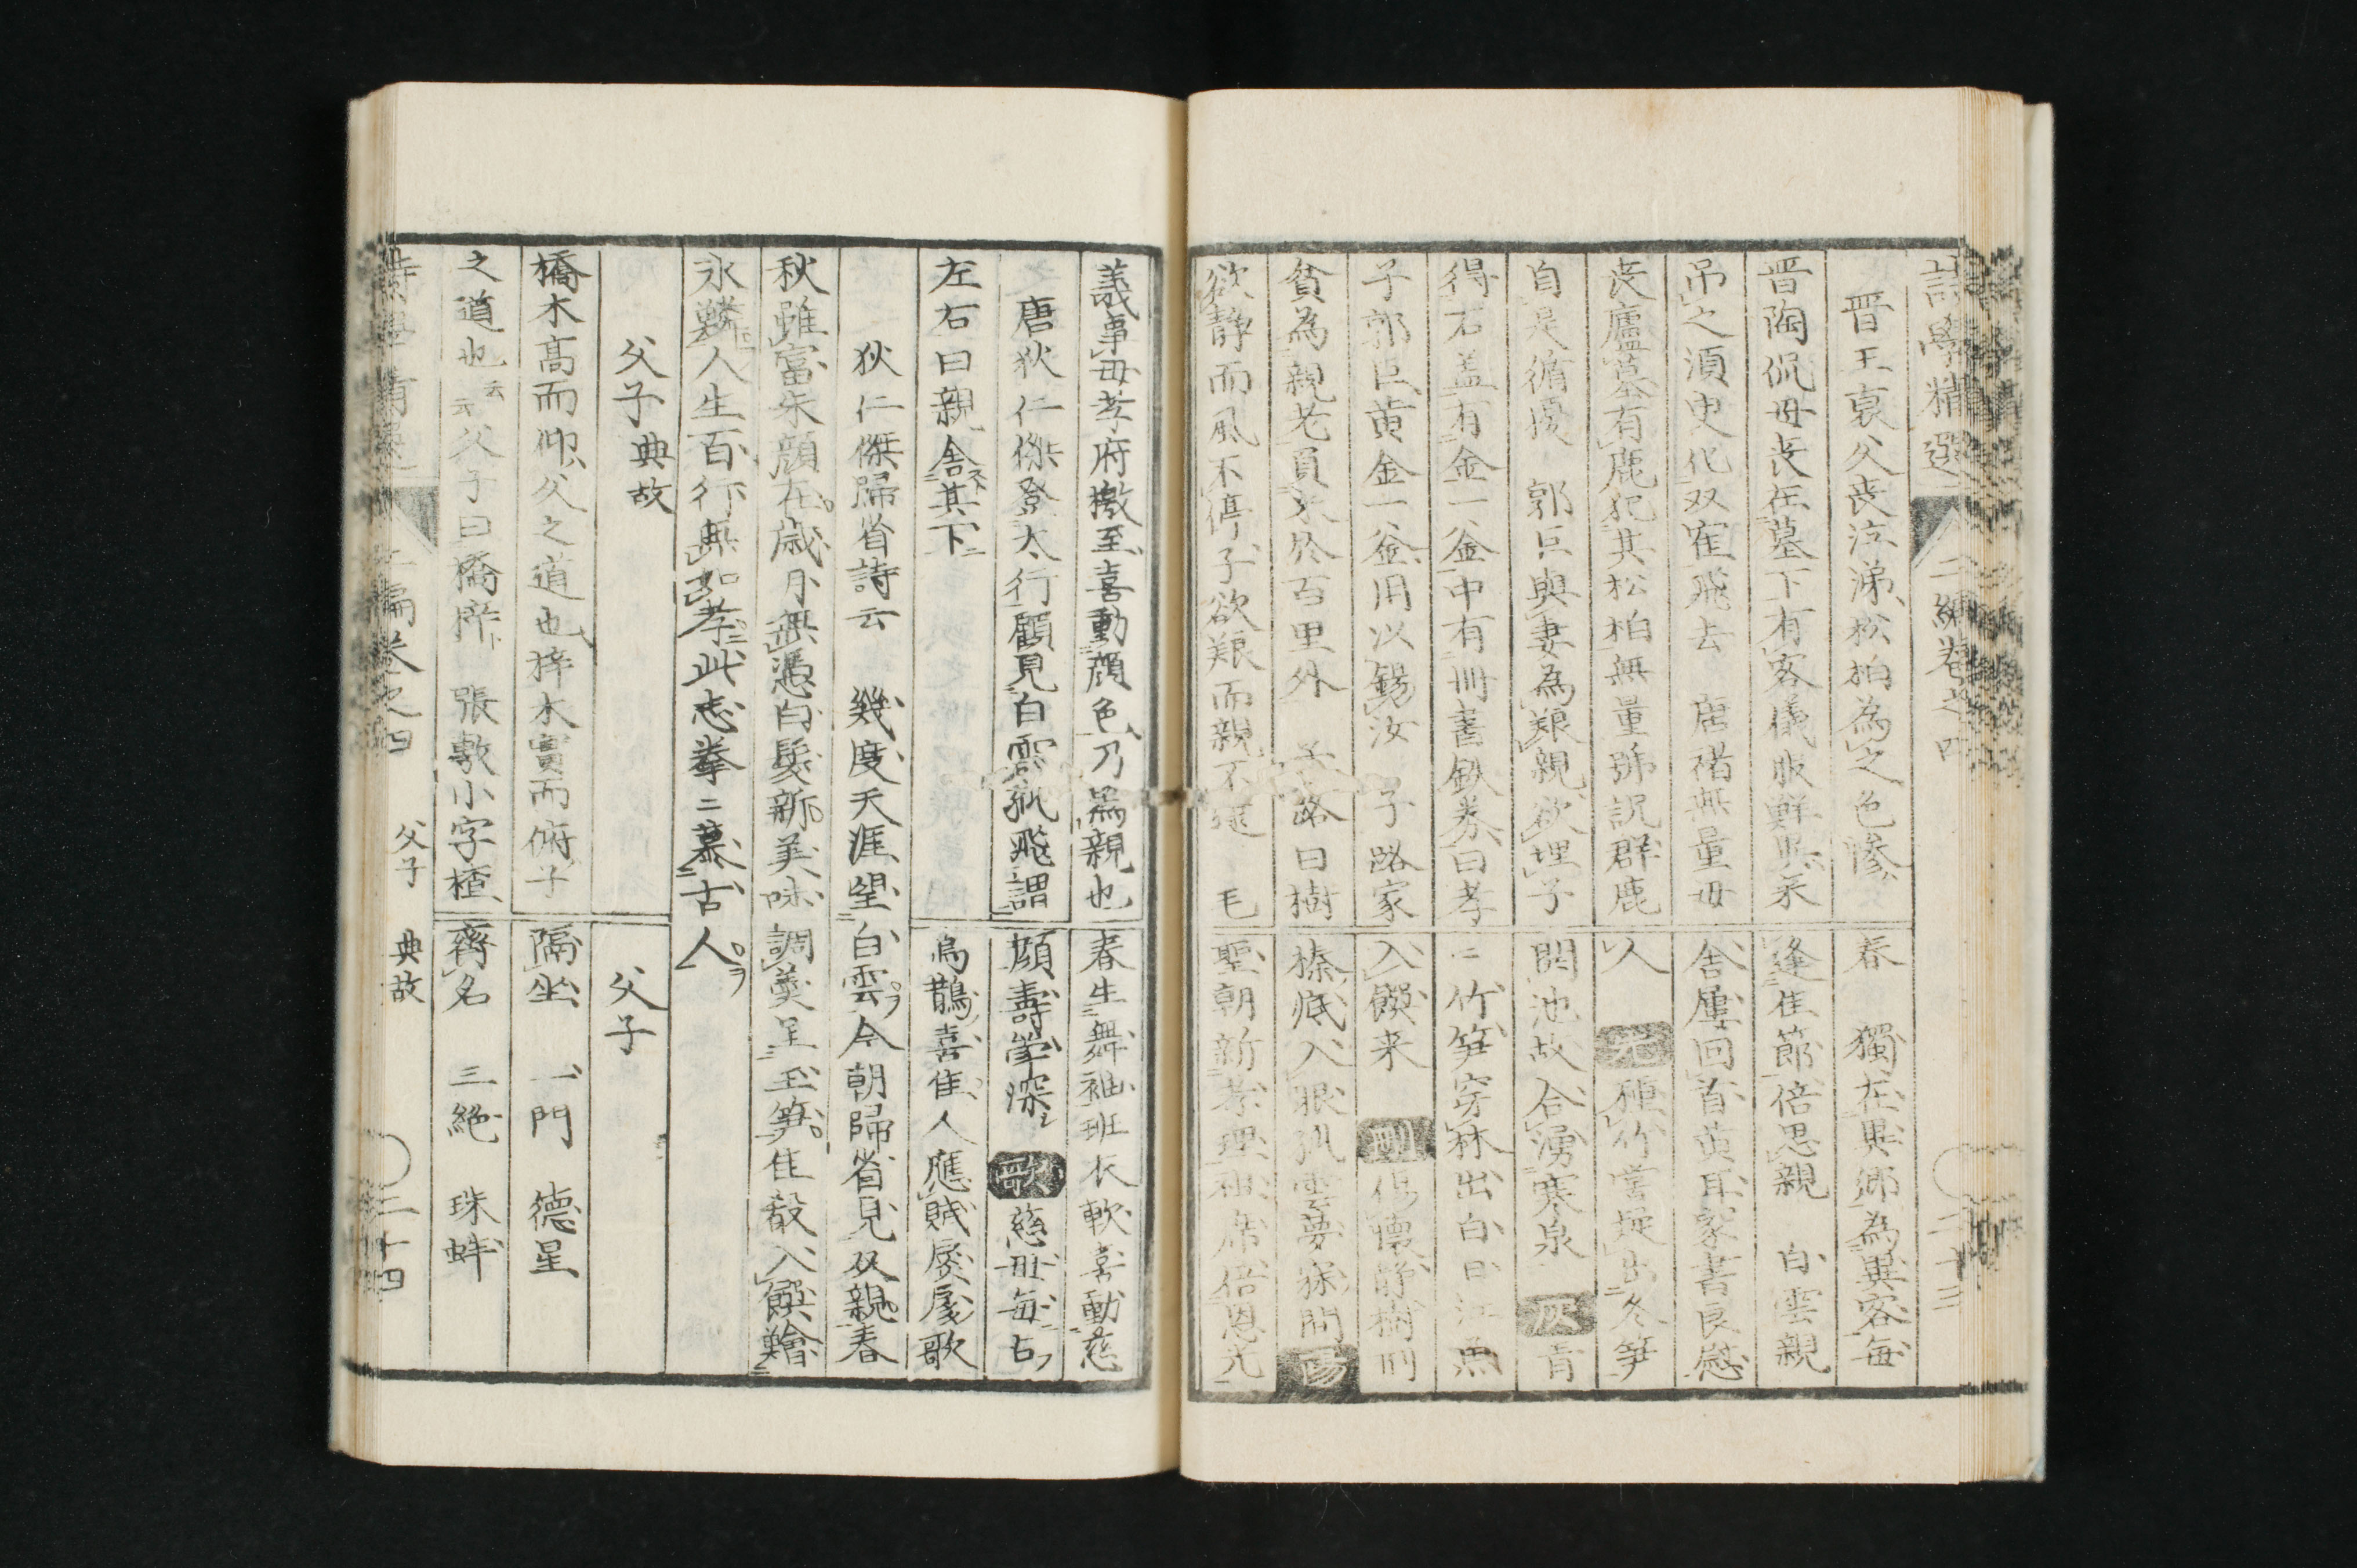 詩學精選 二編卷之四 二十三
晋王裒父喪泣涕松柏為之色慘
晋陶侃母丧在墓下有客儀服鮮異来
吊之須臾化双寉飛去 唐褚無量母
丧廬墓有鹿犯其松柏無量號訴群鹿
自是循擾 郭巨與妻為艱親欲埋子
得石盖有金一釜中有冊書鉄券曰孝
子郭巨黄金一釜用以錫汝 子路家
貧為親老負米於百里外 子路曰樹
欲静而風不停子欲艱而親不逮 毛
春 獨在異郷為異客毎
逢佳節倍思親 白雲親
舎屢回首黄耳家書良慰
人 元 種竹當堤出冬笋
開池故合湧寒泉 灰 肯
二竹笋穿林出白日江魚
入饌来 刪 傷懐静樹
榛底入眼孤雲夢寐間 陽
聖朝新孝理祖席倍恩光
義事母孝府檄至喜動顔色乃為親也
唐狄仁傑登太行顧見白雲孤飛謂
左右曰親舎其下
春生舞袖班衣軟喜動慈
顔壽斚深 歌 慈母毎占
烏鵲喜佳人應賦扊扅歌
狄仁傑歸省詩云 幾度天涯望白雲今朝歸省見双親春
秋雖富朱顔在歳月無憑白髮新美味調羹呈玉笋佳殽入饌鱠
氷鱗人生百行無如孝此志拳二慕古人
父子典故
父子
橋木高而仰父之道也梓木實而俯子
之道也云云父子曰橋梓 張敷小字楂
隔坐 一門 德星
齊名 三絶 珠蚌
詩學精選 二編卷之四 父子 典故 二十四